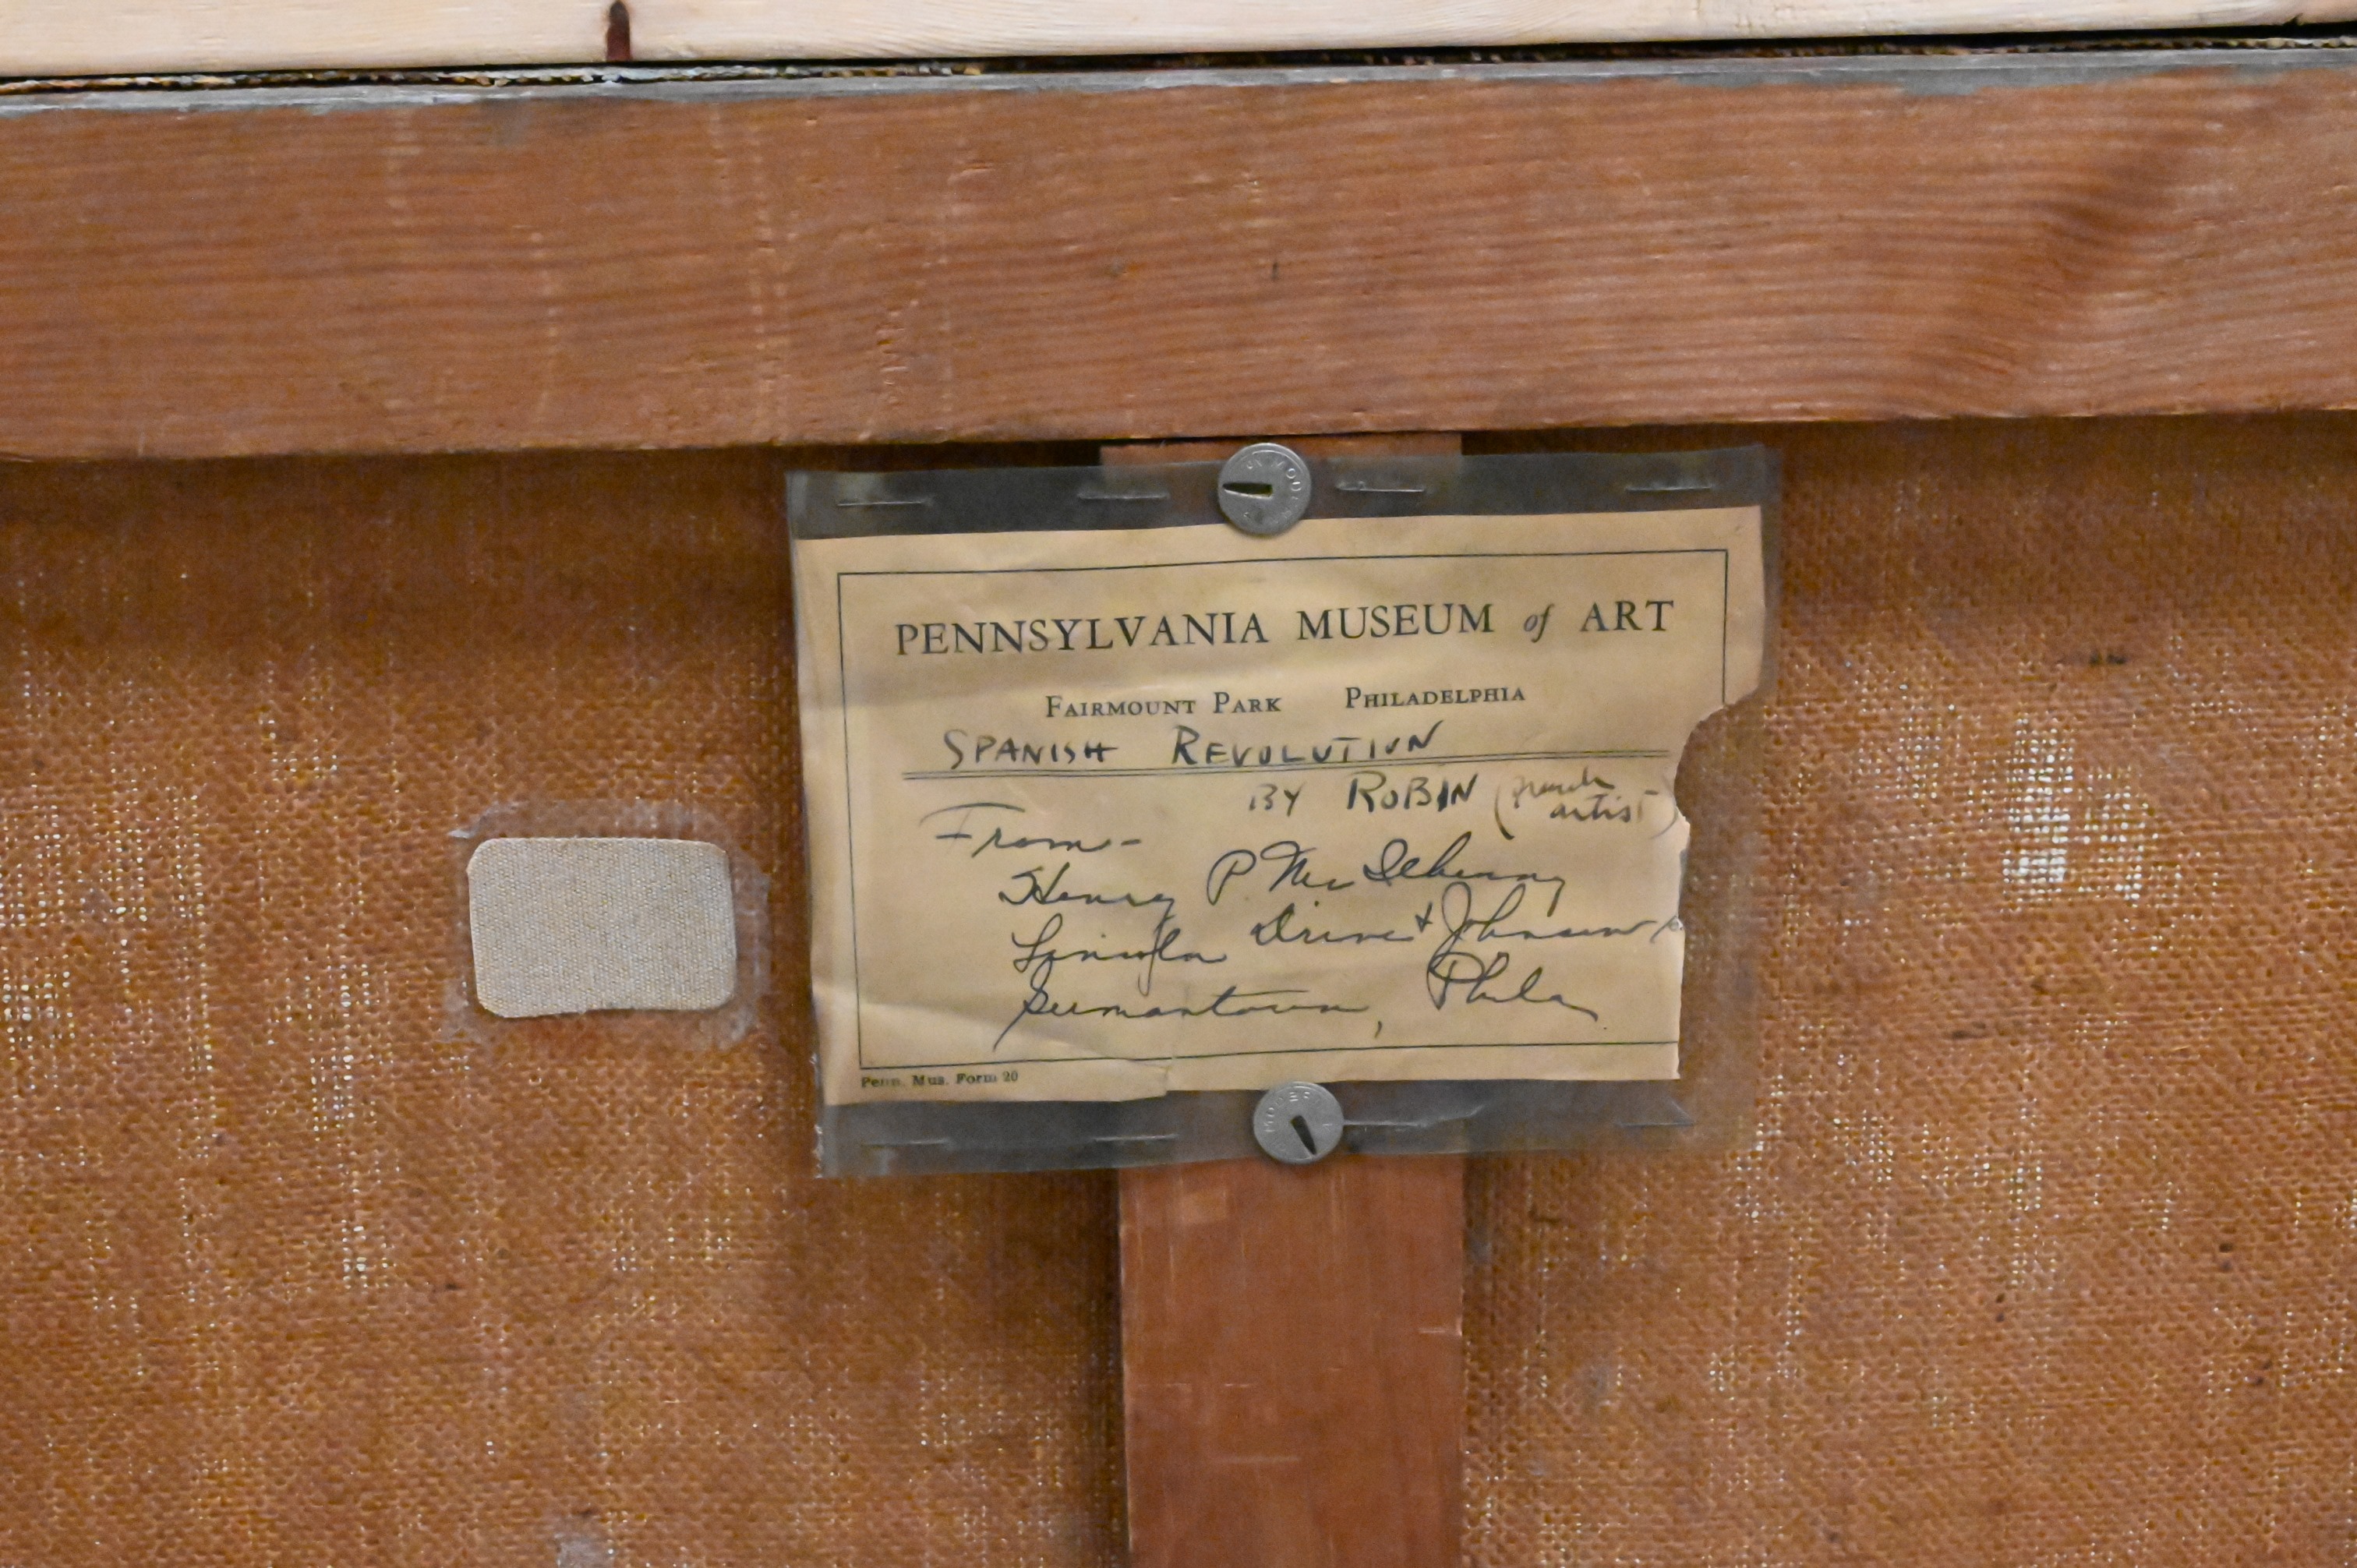 PENNSYLVANIA MUSEUM of ART
FAIRMOUNT PARK PHILADELPHIA
SPANISH REVOLUTION
BY ROBIN (french
artist)
From-
Henry P McIlhenny
Lincoln Drive & Johnson
Germantown, Phila
Penn. Mus. Form 20